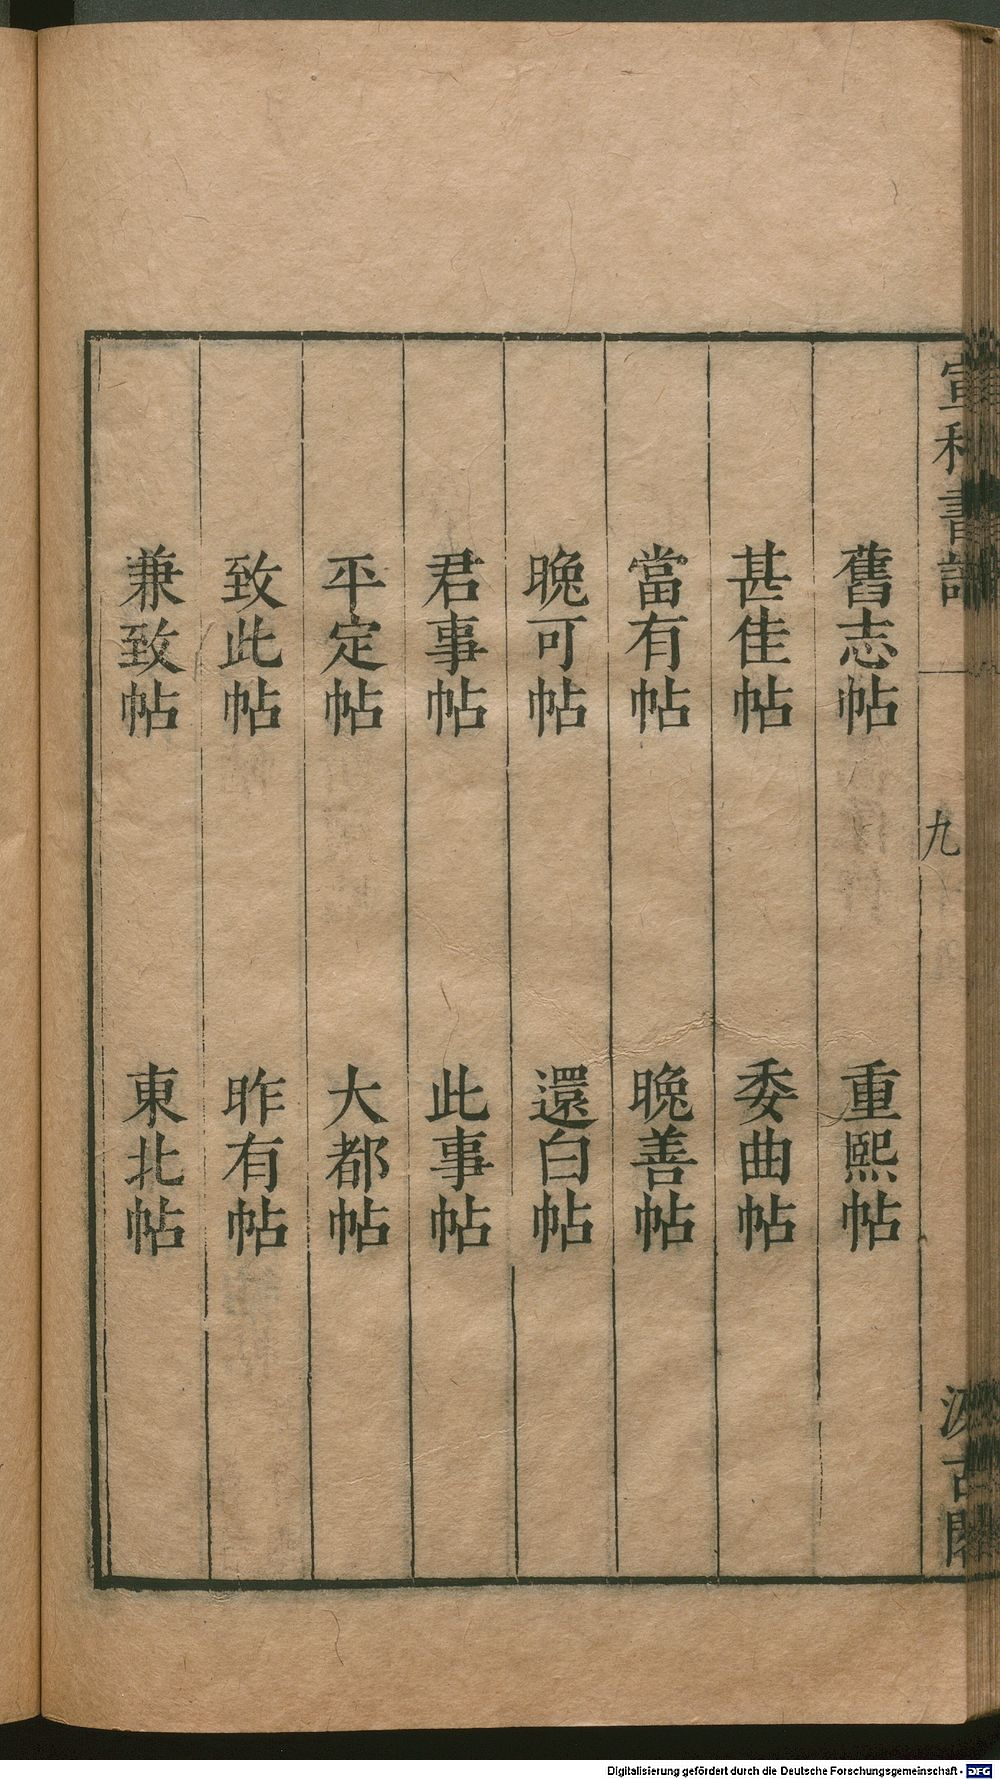 宣和書譜 九 汲古閣
舊志帖 重熙帖
甚佳帖 委曲帖
當有帖 晚善帖
晚可帖 還白帖
君事帖 此事帖
平定帖 大都帖
致此帖 昨有帖
兼致帖 東北帖
Digitalisierung gefördert durch die Deutsche Forschungsgemeinschaft - DFG